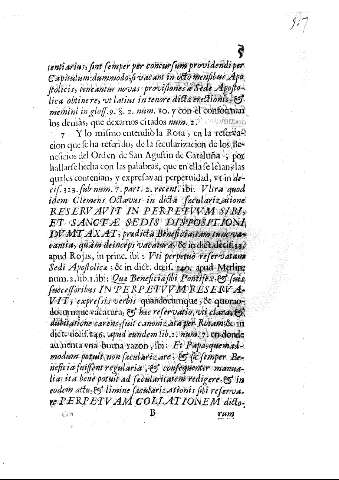 5
tentiarius, sint semper per concursum providendi per
Capitulum: dummodo, si vacant in octo mensibus Apo
stolicis, teneantur novas provisiones à Sede Aposto-
lica obtinere, ut latius in tenore dictæ erectionis, &
memini in gloss. 9. §. 2. num. 10. y con èl conforman
los demàs, que dexamos citados num. 2.
7 Y lo mismo entendiò la Rota, en la reserva-
cion que se ha referido, de la secularizacion de los Be-
neficios del Orden de San Agustin de Cataluña, por
hallarse hecha con las palabras, que en ella se leìan, las
quales contenian, y expresavan perpetuidad, ut in de-
cis. 323. sub num. 7. part. 2. recent. ibi: Ultra quod
idem Clemens Octavus in dicta sæcularizatione
RESERVAVIT IN PERPETVVM SIBI,
ET SANCTÆ SEDIS DISPOSITIONI,
DVMTAXAT: prædicta Beneficia tam tunc va-
cantia, quàm deinceps vacatura, & in dict. decis.
apud Rojas, in princ. ibi: Vti perpetuò reservatum
Sedi Apostolicæ: & in dict. decis. 249. apud Merlin.
num. 2. lib. 1. ibi: Quæ Beneficia sibi Pontifex, & suis
successoribus IN PERPETVVM RESERVA-
VIT; expressis verbis quandocumque, & quomo-
documque vacatura, & hæc reservatio, uti clara, &
dubitatione carens, fuit canonizata per Rotam: & in
dict. decis. 249. apud eumdem lib. 2. num. 7. en donde
aumenta una buena razon, ibi: Et Papa, quemad-
modum potuit, non sæcularizare; & sic semper Be-
neficia fuissent regularia, & consequenter manua-
lia: ita bene potuit ad sæcularitatem redigere, & in
eodem actu, & limine sæcularizationis sibi reserva-
re PERPETVAM COLLATIONEM dicto-
B
rum